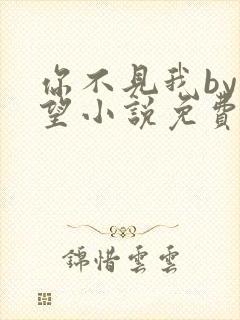 你不見我by
望小説免費
錦惜雲雲